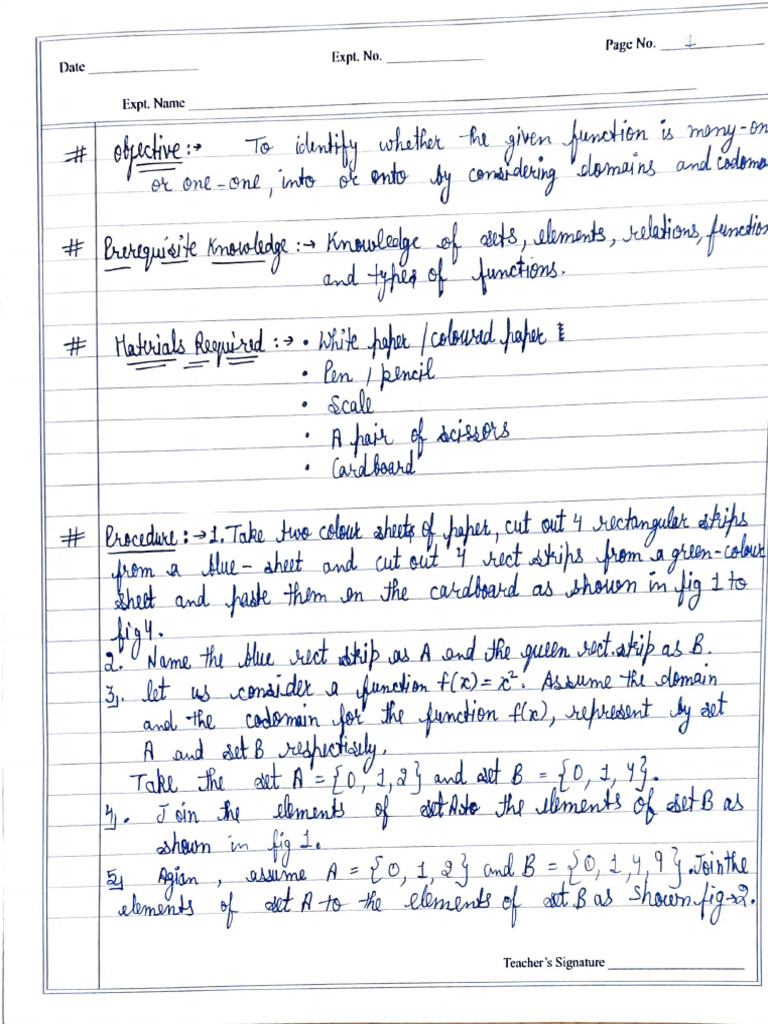 Date
Expt. No.
Page No. 1
Expt. Name
# Objective :→ To identify whether the given function is many-on
or one-one, into or onto by considering domains and codoma
# Prerequisite Knowledge :→ Knowledge of sets, elements, relations, function
and types of functions.
# Materials Required :→ • White paper / coloured paper
• Pen / pencil
• Scale
• A pair of scissors
• Cardboard
# Procedure :→ 1. Take two colour sheets of paper, cut out 4 rectangular strips
from a blue - sheet and cut out 4 rect strips from a green-colour
sheet and paste them on the cardboard as shown in fig 1 to
fig 4.
2. Name the blue rect strip as A and the queen rect. strip as B.
3. let us consider a function f(x) = x². Assume the domain
and the codomain for the function f(x), represent by set
A and set B respectisely.
Take the set A = {0, 1, 2} and set B = {0, 1, 4}.
4. Join the elements of set A to the elements of set B as
shown in fig 1.
5. Agian, assume A = {0, 1, 2} and B = {0, 1, 4, 9}. Join the
elements of set A to the elements of set B as shown fig→2.
Teacher's Signature